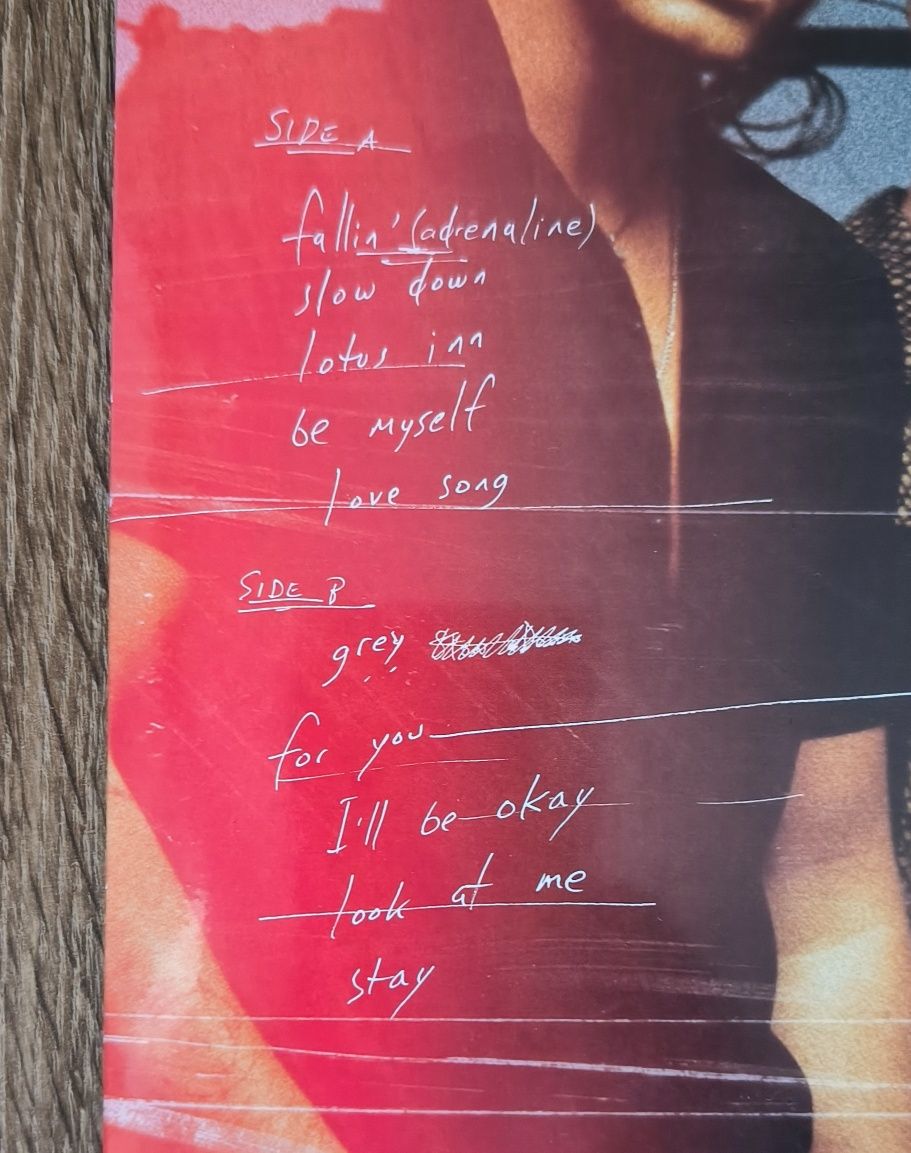 SIDE A
fallin' (adrenaline)
slow down
lotus inn
be myself
love song
SIDE B
grey
for you
I'll be okay
look at me
stay